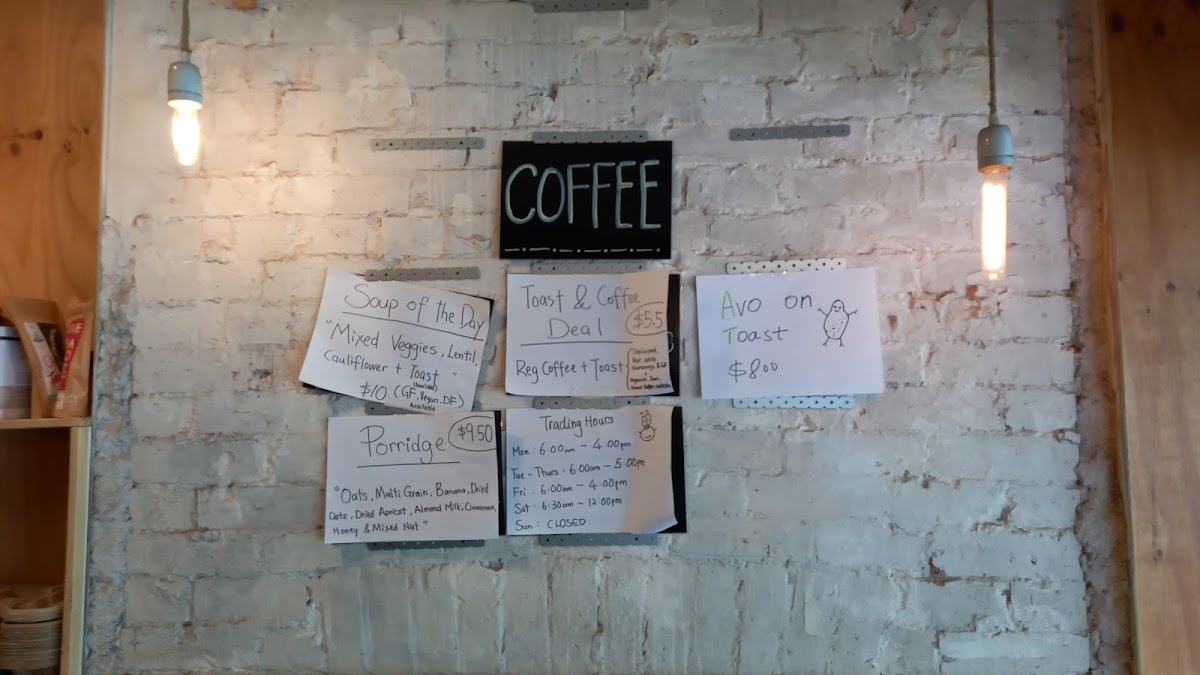 COFFEE
Soup of the Day
"Mixed Veggies, Lentil,
Cauliflower + Toast "
$10 (GF, Vegan, DF)
Available
Toast & Coffee
Deal
$5.5
Reg Coffee + Toast
Avo on
Toast
$8.00
Porridge
$9.50
"Oats, Multi Grain, Banana, Dried
Date, Dried Apricot, Almond Milk, Cinnamon,
Honey & Mixed Nut"
Trading Hours
Mon : 6:00am - 4:00pm
Tue - Thurs : 6:00am - 5:00pm
Fri : 6:00am - 4:00pm
Sat : 6:30am - 12:00pm
Sun : CLOSED